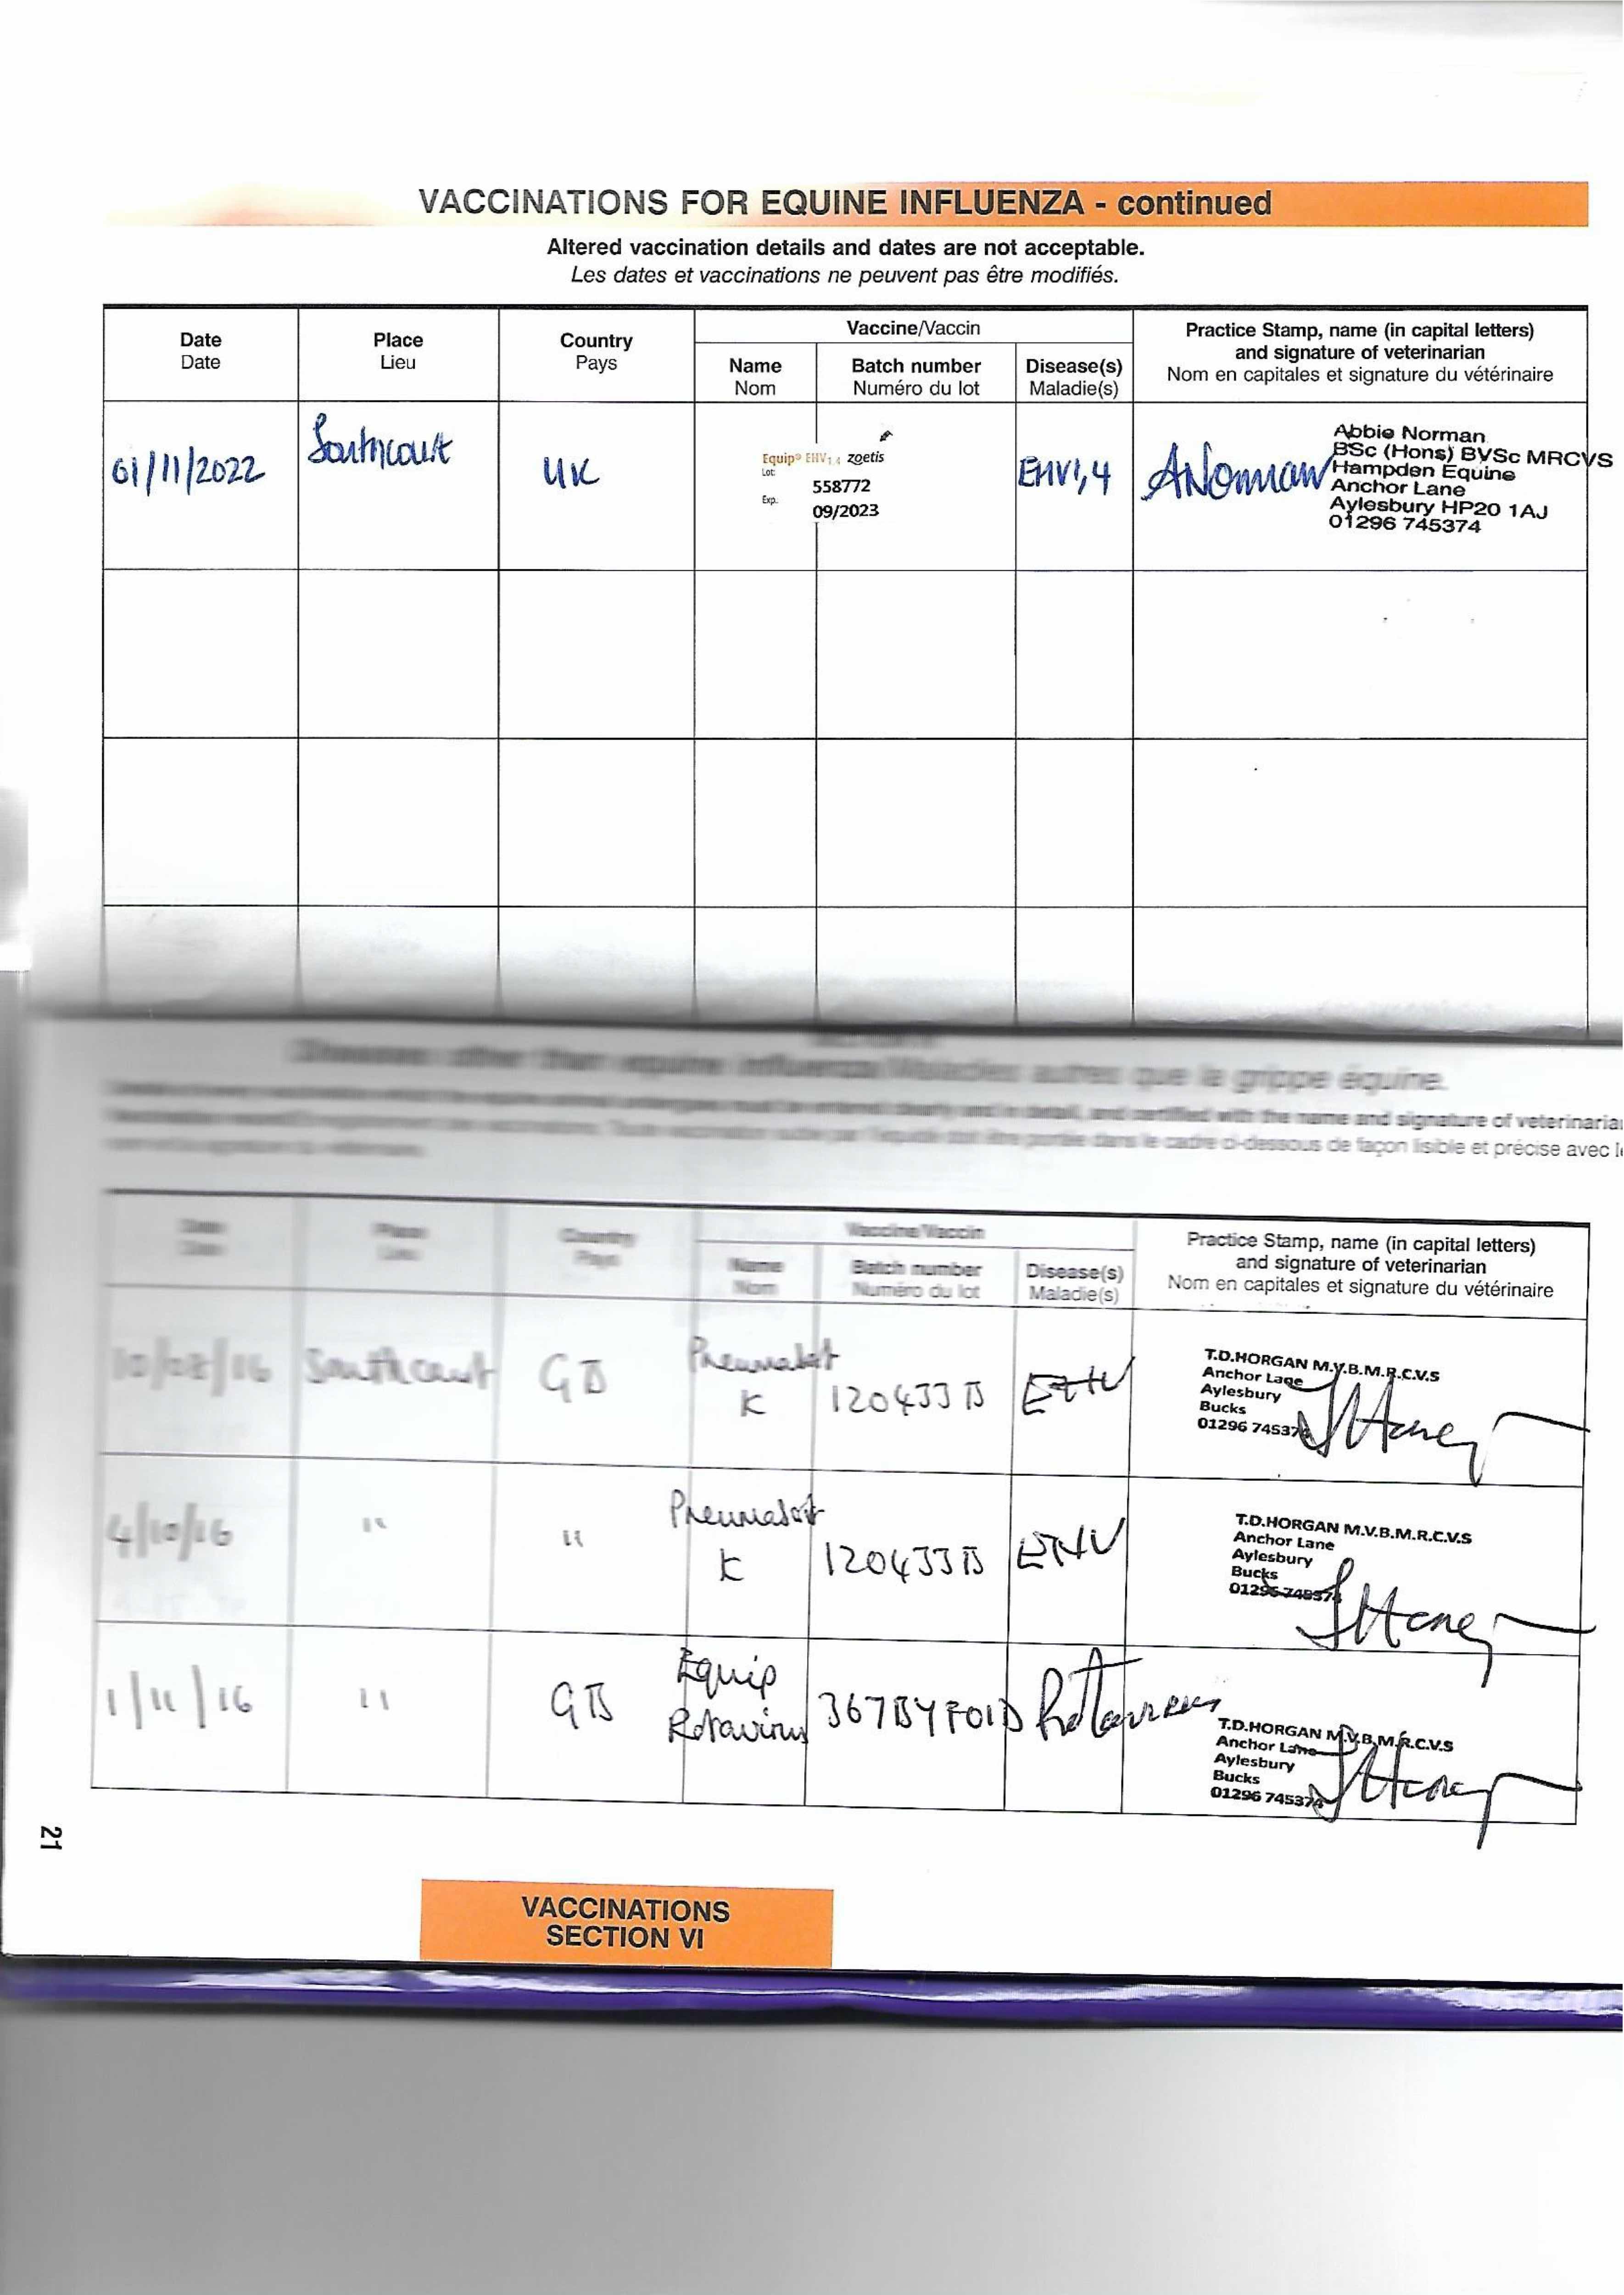 VACCINATIONS FOR EQUINE INFLUENZA - continued
Altered vaccination details and dates are not acceptable.
Les dates et vaccinations ne peuvent pas être modifiés.
Date
Date
Place
Lieu
Country
Pays
Vaccine/Vaccin
Name
Nom
Batch number
Numéro du lot
Disease(s)
Maladie(s)
Practice Stamp, name (in capital letters)
and signature of veterinarian
Nom en capitales et signature du vétérinaire
01/11/2022
Southcourt
UK
Equip® EHV1,4 zoetis
Lot: 558772
Exp. 09/2023
EHV1,4
ANorman
Abbie Norman
BSc (Hons) BVSc MRCVS
Hampden Equine
Anchor Lane
Aylesbury HP20 1AJ
01296 745374
Diseases other than equine influenza/Maladies autres que la grippe équine.
and certified with the name and signature of veterinaria
doit être portée dans le cadre ci-dessous de façon lisible et précise avec le
Date
Date
Place
Lieu
Country
Pays
Vaccine/Vaccin
Name
Nom
Batch number
Numéro du lot
Disease(s)
Maladie(s)
Practice Stamp, name (in capital letters)
and signature of veterinarian
Nom en capitales et signature du vétérinaire
10/08/16 Southcourt GB
Pneumabort
K
120433B
EHV
T.D.HORGAN M.V.B.M.R.C.V.S
Anchor Lane
Aylesbury
Bucks
01296 745374
4/10/16 " "
Pneumabort
K
120433B
EHV
T.D.HORGAN M.V.B.M.R.C.V.S
Anchor Lane
Aylesbury
Bucks
01296 745374
1/11/16 " GB
Equip
Rotavirus
367BYF01D
Rotavirus
T.D.HORGAN M.V.B.M.R.C.V.S
Anchor Lane
Aylesbury
Bucks
01296 745374
21
VACCINATIONS
SECTION VI